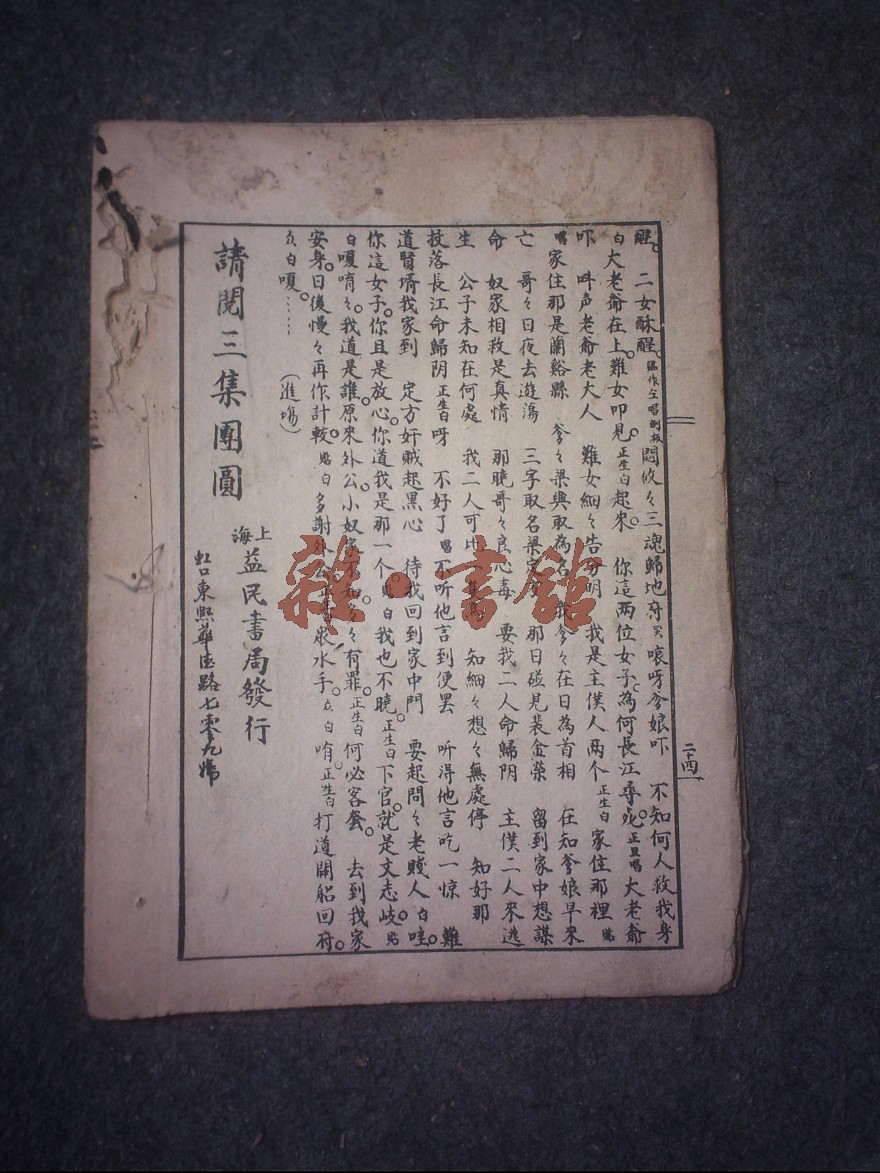 醒。 二女酥醒。 唱倒板 悶攸々三魂歸地府 哭 哀呀爹娘吓 不知何人救我身
白 大老爺在上。難女叩見。 正生白 起來。 你這兩位女子。為何長江尋死。 正旦唱 大老爺
吓 呌声老爺老大人 難女細々告分明 我是主僕人兩个 正生白 家住那裡 貼
唱 家住那是蘭谿縣 爹々梁興取為名 我爹々在日為首相 在知爹娘早來
亡 哥々日夜去遊蕩 三字取名梁 那日碰見裴金荣 留到家中想謀
命 奴家相救是真情 那曉哥々良心毒 要我二人命歸阴 主僕二人來逃
生 公子未知在何處 我二人可比 知細々想々無處停 知好那
投落長江命歸阴 正生白 呀 不好了 唱 不听他言到便罢 听得他言吃一惊 難
道賢壻我家到 定方奸賊起黑心 待我回到家中門 要起問々老賤人 白 哇。
你這女子。你且是放心。你道我是那一个。 貼白 我也不曉。 正生白 下官就是文志岐。 貼
白 嗄唷々。我道是誰。原來外公。小奴家不知。多々有罪。 正生白 何必客套。 去到我家
安身。日後慢々再作計較。 貼白 多謝外公。 正生白 眾水手。 众白 唷 正生白 打道開船回府。
众白 嗄。⋯⋯ (進塲)
請閱三集團圓
上海 益民書局發行
虹口東熙華德路七零九號
二十四
雜·書館